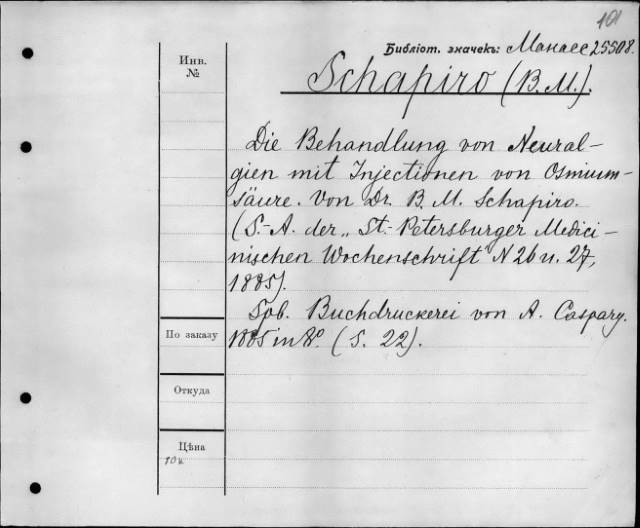 101
Библіот. значекъ: Манасс 25508.
Инв.
№
Schapiro (B. M.).
Die Behandlung von Neural-
gien mit Injectionen von Osmium-
säure. Von Dr. B. M. Schapiro.
(S.-A. der „St.-Petersburger Medici-
nischen Wochenschrift" N 26 u. 27,
1885).
Spb. Buchdruckerei von A. Caspary.
1885 in 8°. (S. 22).
По заказу
Откуда
Цѣна
10 к